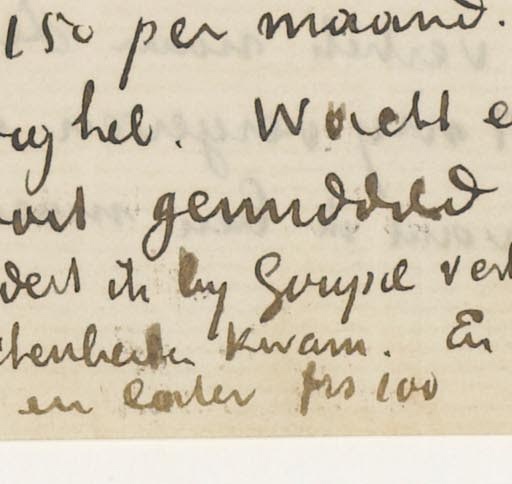 150 per maand.
heb. Wordt e
gemiddeld
dert ik by Goupil verl
kwam. En
en later frs 100